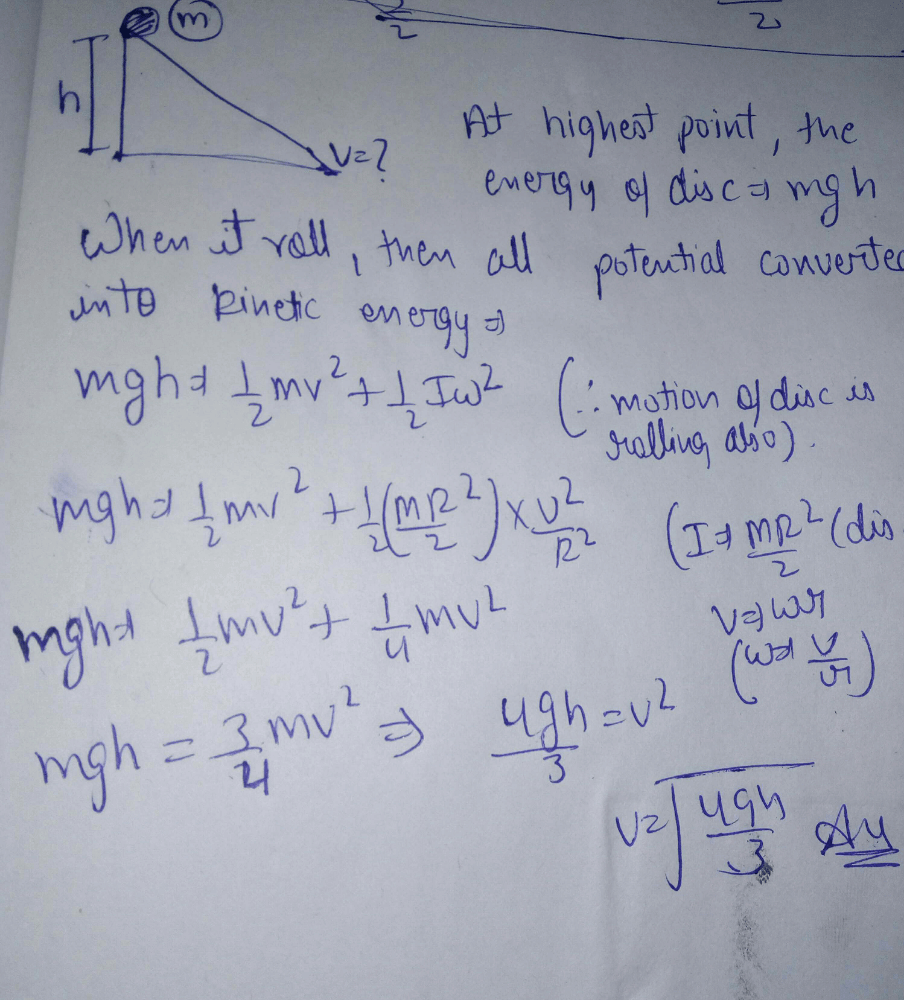 m
2
2
h
v=?
At highest point, the
energy of disc ⇒ mgh
When it roll, then all potential converted
into kinetic energy ⇒
mgh ⇒ 1/2 mv² + 1/2 Iω² (∵ motion of disc is
rolling also).
mgh ⇒ 1/2 mv² + 1/2 (MR²/2) × v²/R² (I ⇒ MR²/2 (dis
mgh ⇒ 1/2 mv² + 1/4 mv² v ⇒ ωr
(ω ⇒ v/r)
mgh = 3/4 mv² ⇒ 4gh/3 = v²
v = √4gh/3 Ans